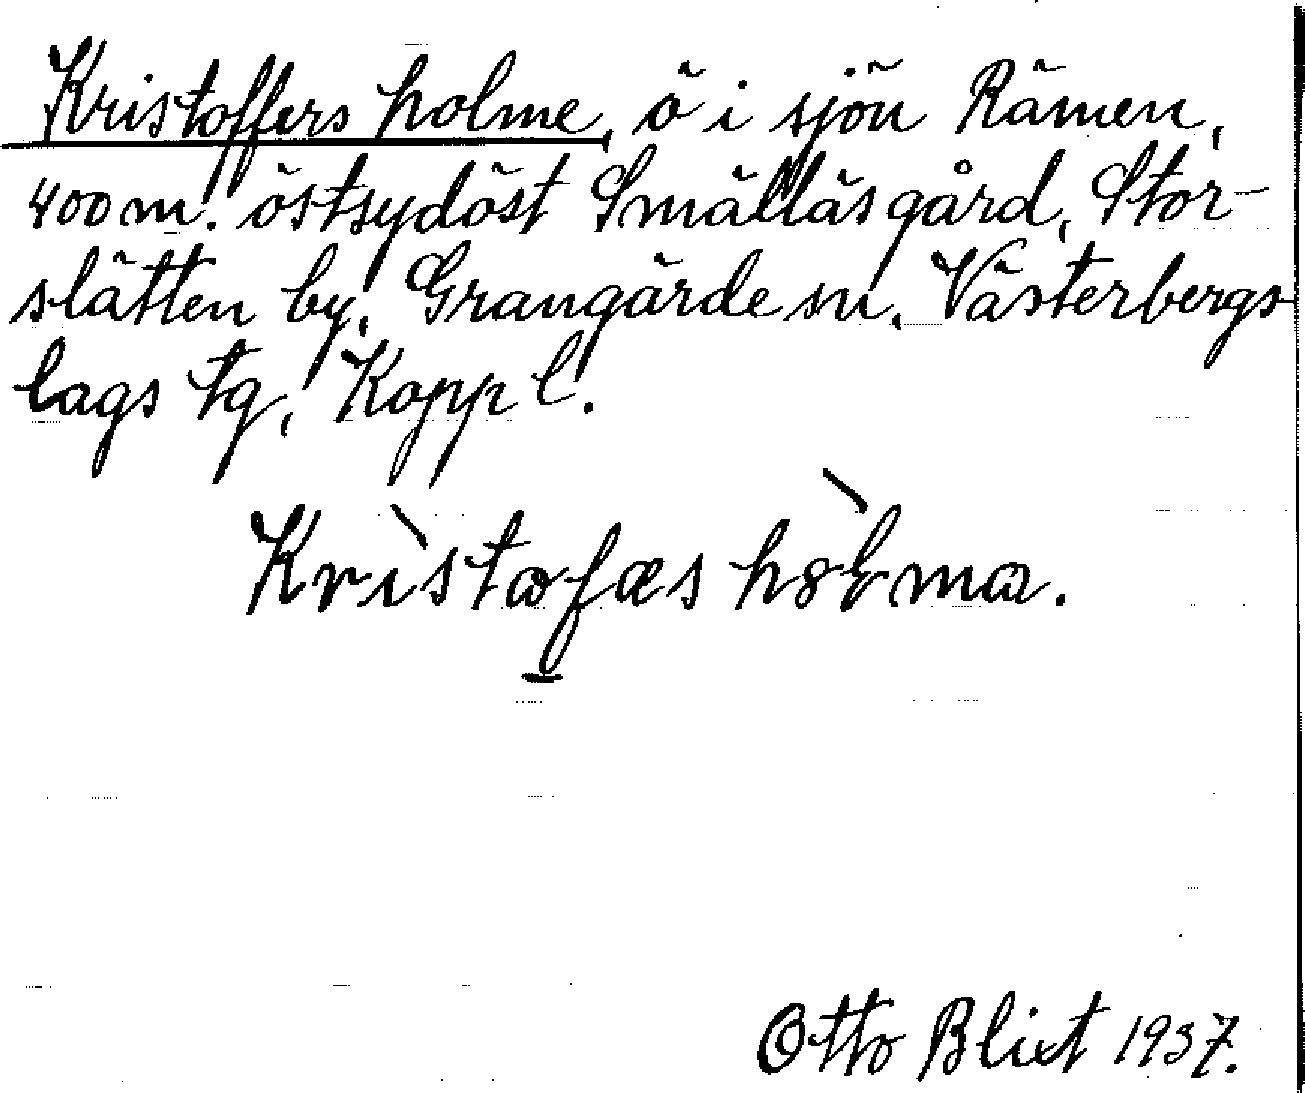 Kristoffers holme, ö i sjön Rämen,
400 m. östsydöst Smälläsgård, Stor-
slätten by, Grangärde sn. Västerbergs-
lags tg, Kopp l.
Krìstafæs
Otto Blixt 1937.